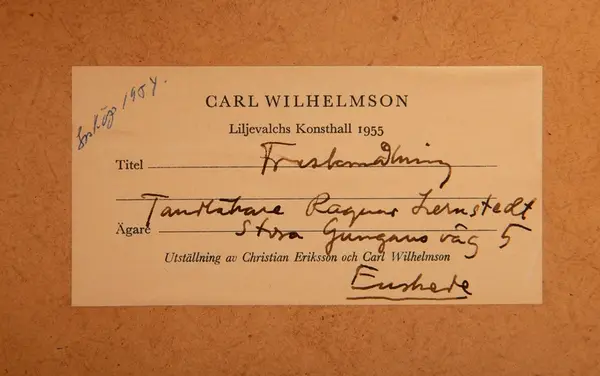 Inköp 1954.
CARL WILHELMSON
Liljevalchs Konsthall 1955
Titel Freskomålning
Tandläkare Ragnar Lernstedt
Ägare Stora Gungans väg 5
Utställning av Christian Eriksson och Carl Wilhelmson
Enskede